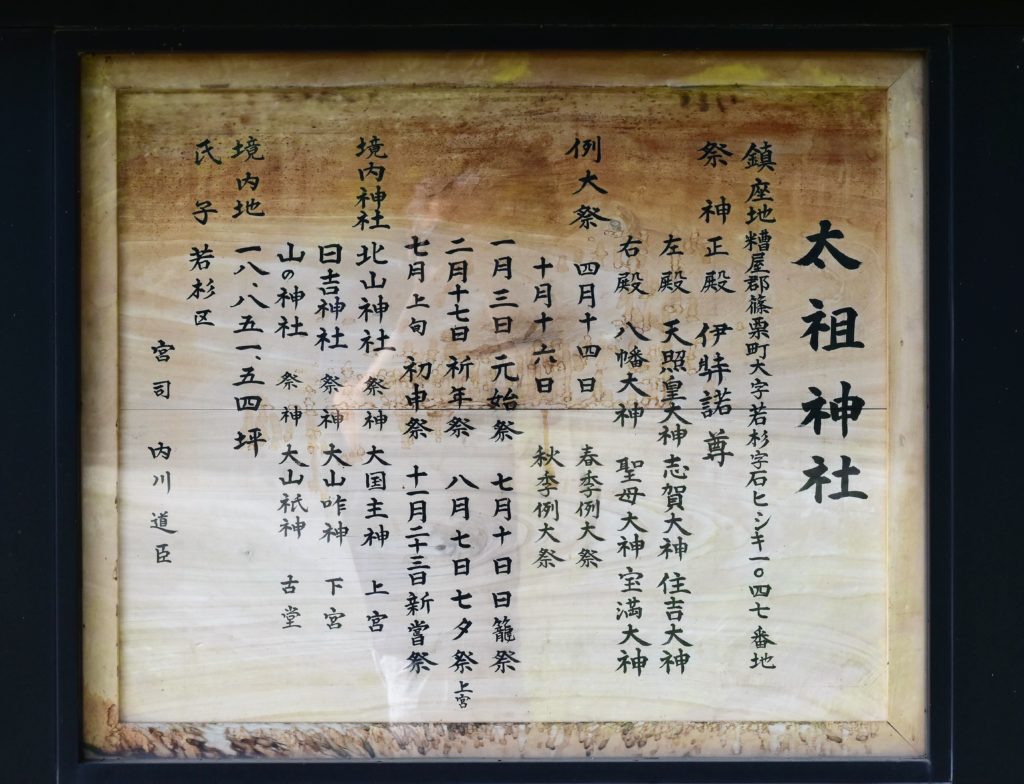 太祖神社
鎮座地 糟屋郡篠栗町大字若杉字石ヒシキ一〇四七番地
祭神 正殿 伊弉諾尊
左殿 天照皇大神 志賀大神 住吉大神
右殿 八幡大神 聖母大神 宝満大神
例大祭 四月十四日 春季例大祭
十月十六日 秋季例大祭
一月三日 元始祭 七月十日 日籠祭
二月十七日 祈年祭 八月七日 七夕祭 上宮
七月上旬 初申祭 十一月二十三日 新嘗祭
境内神社 北山神社 祭神 大国主神 上宮
日吉神社 祭神 大山咋神 下宮
山の神社 祭神 大山祇神 古堂
境内地 一八、八五一、五四坪
氏子 若杉区
宮司 内川道臣